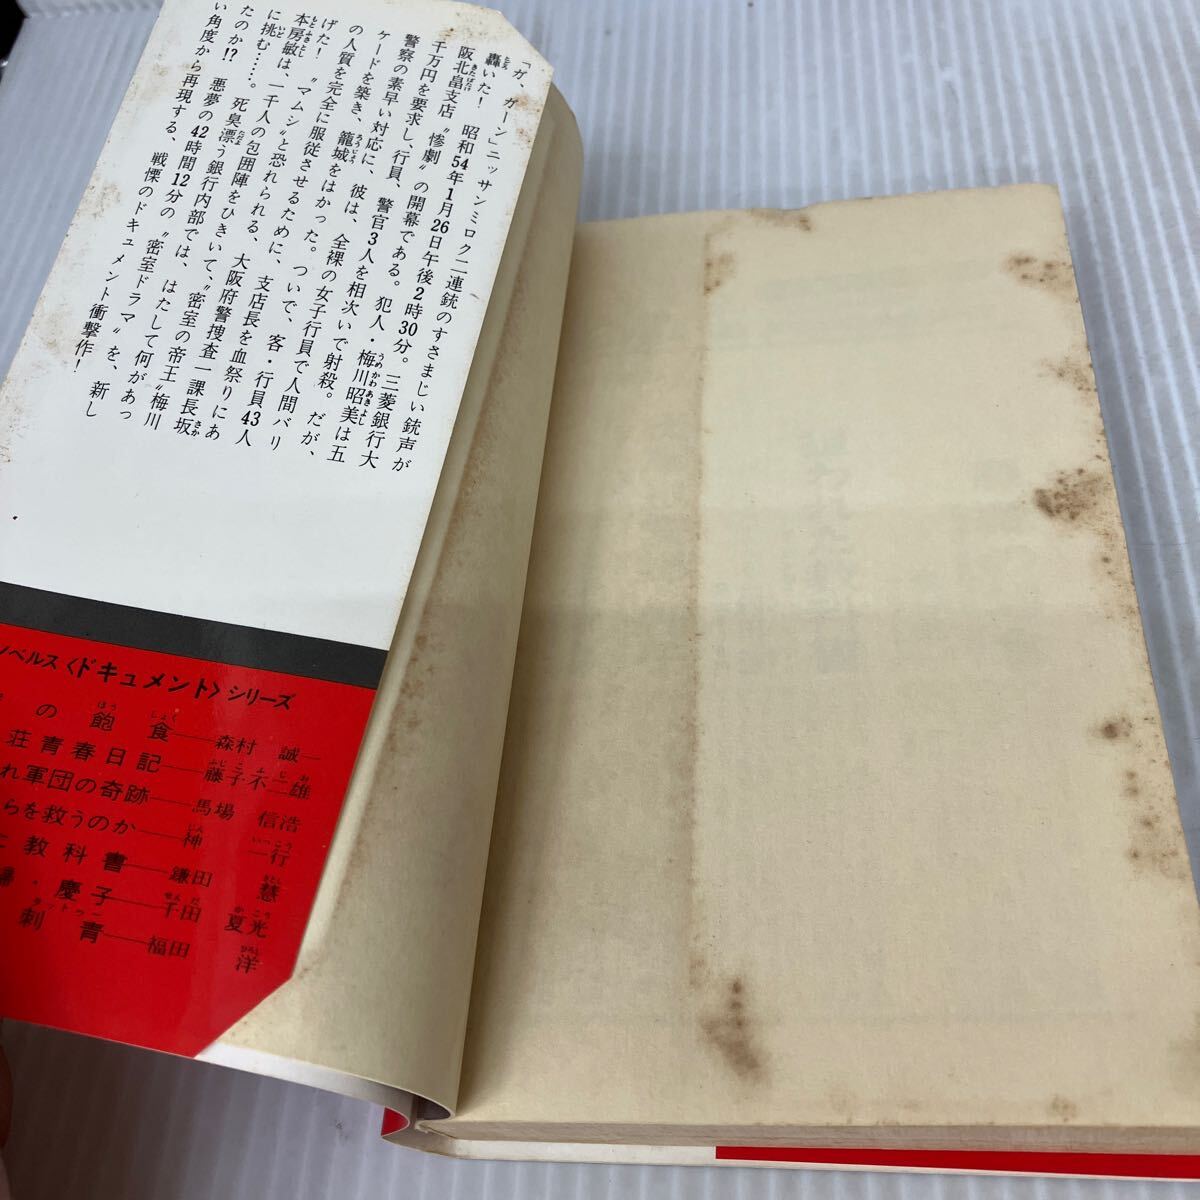 「ガ、ガーン」ニッサンミロク二連銃のすさまじい銃声が
轟いた！　昭和54年1月26日午後2時30分。三菱銀行大
阪北畠支店〝惨劇〟の開幕である。犯人・梅川昭美は五
千万円を要求し、行員、警官3人を相次いで射殺。だが、
警察の素早い対応に、彼は、全裸の女子行員で人間バリ
ケードを築き、籠城をはかった。ついで、客・行員43人
の人質を完全に服従させるために、支店長を血祭りにあ
げた！　〝マムシ〟と恐れられる、大阪府警捜査一課長坂
本房敏は、一千人の包囲陣をひきいて、〝密室の帝王〟梅川
に挑む……。死臭漂う銀行内部では、はたして何があっ
たのか!?　悪夢の42時間12分の〝密室ドラマ〟を、新し
い角度から再現する、戦慄のドキュメント衝撃作！
ノベルス〈ドキュメント〉シリーズ
の飽食——森村誠一
荘青春日記——藤子不二雄
れ軍団の奇跡——馬場信浩
らを救うのか——神一行
教科書——鎌田慧
・慶子——千田夏光
刺青——福田洋